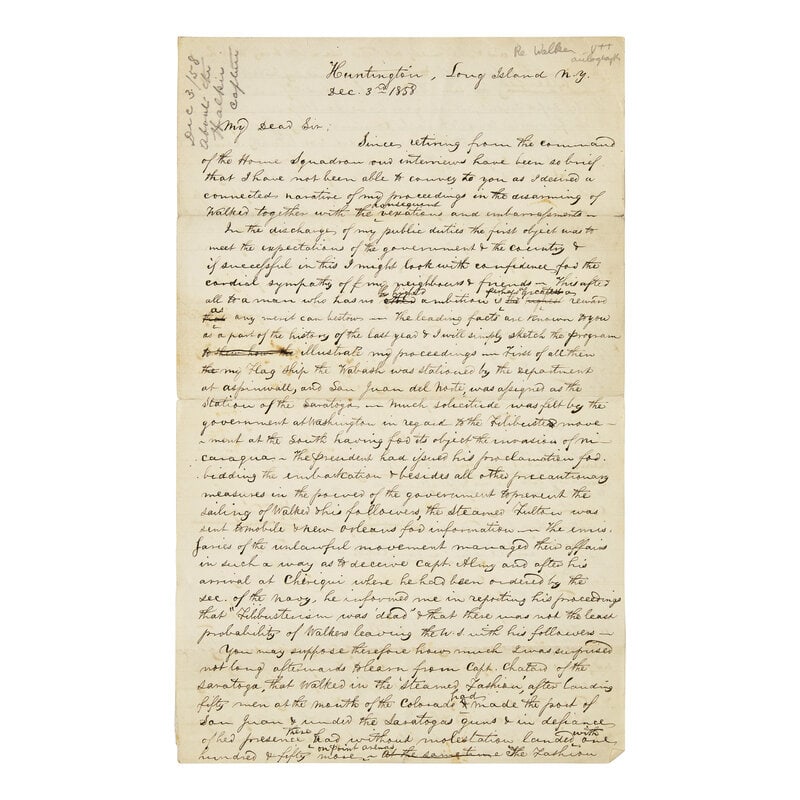 Re Walker
autograph
Dec 3/58
About the
Walker
Capture
Huntington, Long Island N.Y.
Dec. 3rd 1858
My Dear Sir;
Since retiring from the command
of the Home Squadron our interviews have been so brief
that I have not been able to convey to you as I desired a
connected narative of my proceedings in the disarming of
consequent
Walker together with the vexations and embarrassments —
In the discharge of my public duties the first object was to
meet the expectations of the government & the country &
if successful in this I might look with confidence for the
cordial sympathy of my neighbours & friends — This after
all to a man who has no ambition is reward
as
any merit can bestow — The leading facts are known to you
as a part of the history of the last year & I will simply sketch the program
to shew how the illustrate my proceedings — First of all then
the my Flag Ship the Wabash was stationed by the Department
at Aspinwall, and San Juan del Norte, was assigned as the
station of the Saratoga — Much solicitude was felt by the
government at Washington in regard to the Filibuster move-
-ment at the South having for its object the invasion of Ni-
-caragua — The President had issued his proclamation for-
-bidding the embarkation & besides all other precautionary
measures in the power of the government to prevent the
sailing of Walker & his followers, the steamer Fulton was
sent to Mobile & New Orleans for information — The emis-
saries of the unlawful movement managed their affairs
in such a way as to deceive Capt. Almy and after his
arrival at Cheriqui where he had been ordered by the
sec. of the Navy, he informed me in reporting his proceedings
that "Filibusterism was 'dead' & that there was not the least
probability of Walkers leaving the U S with his followers —
You may suppose therefore how much I was surprised
not long afterwards to learn from Capt. Chatard of the
Saratoga, that Walker in the 'steamer Fashion', after landing
had
fifty men at the mouth of the Colorado & made the port of
San Juan & under the Saratogas guns & in defiance
there with
of her presence had without molestation landed one
on Point Arenas
hundred & fifty more — At the same time The Fashion